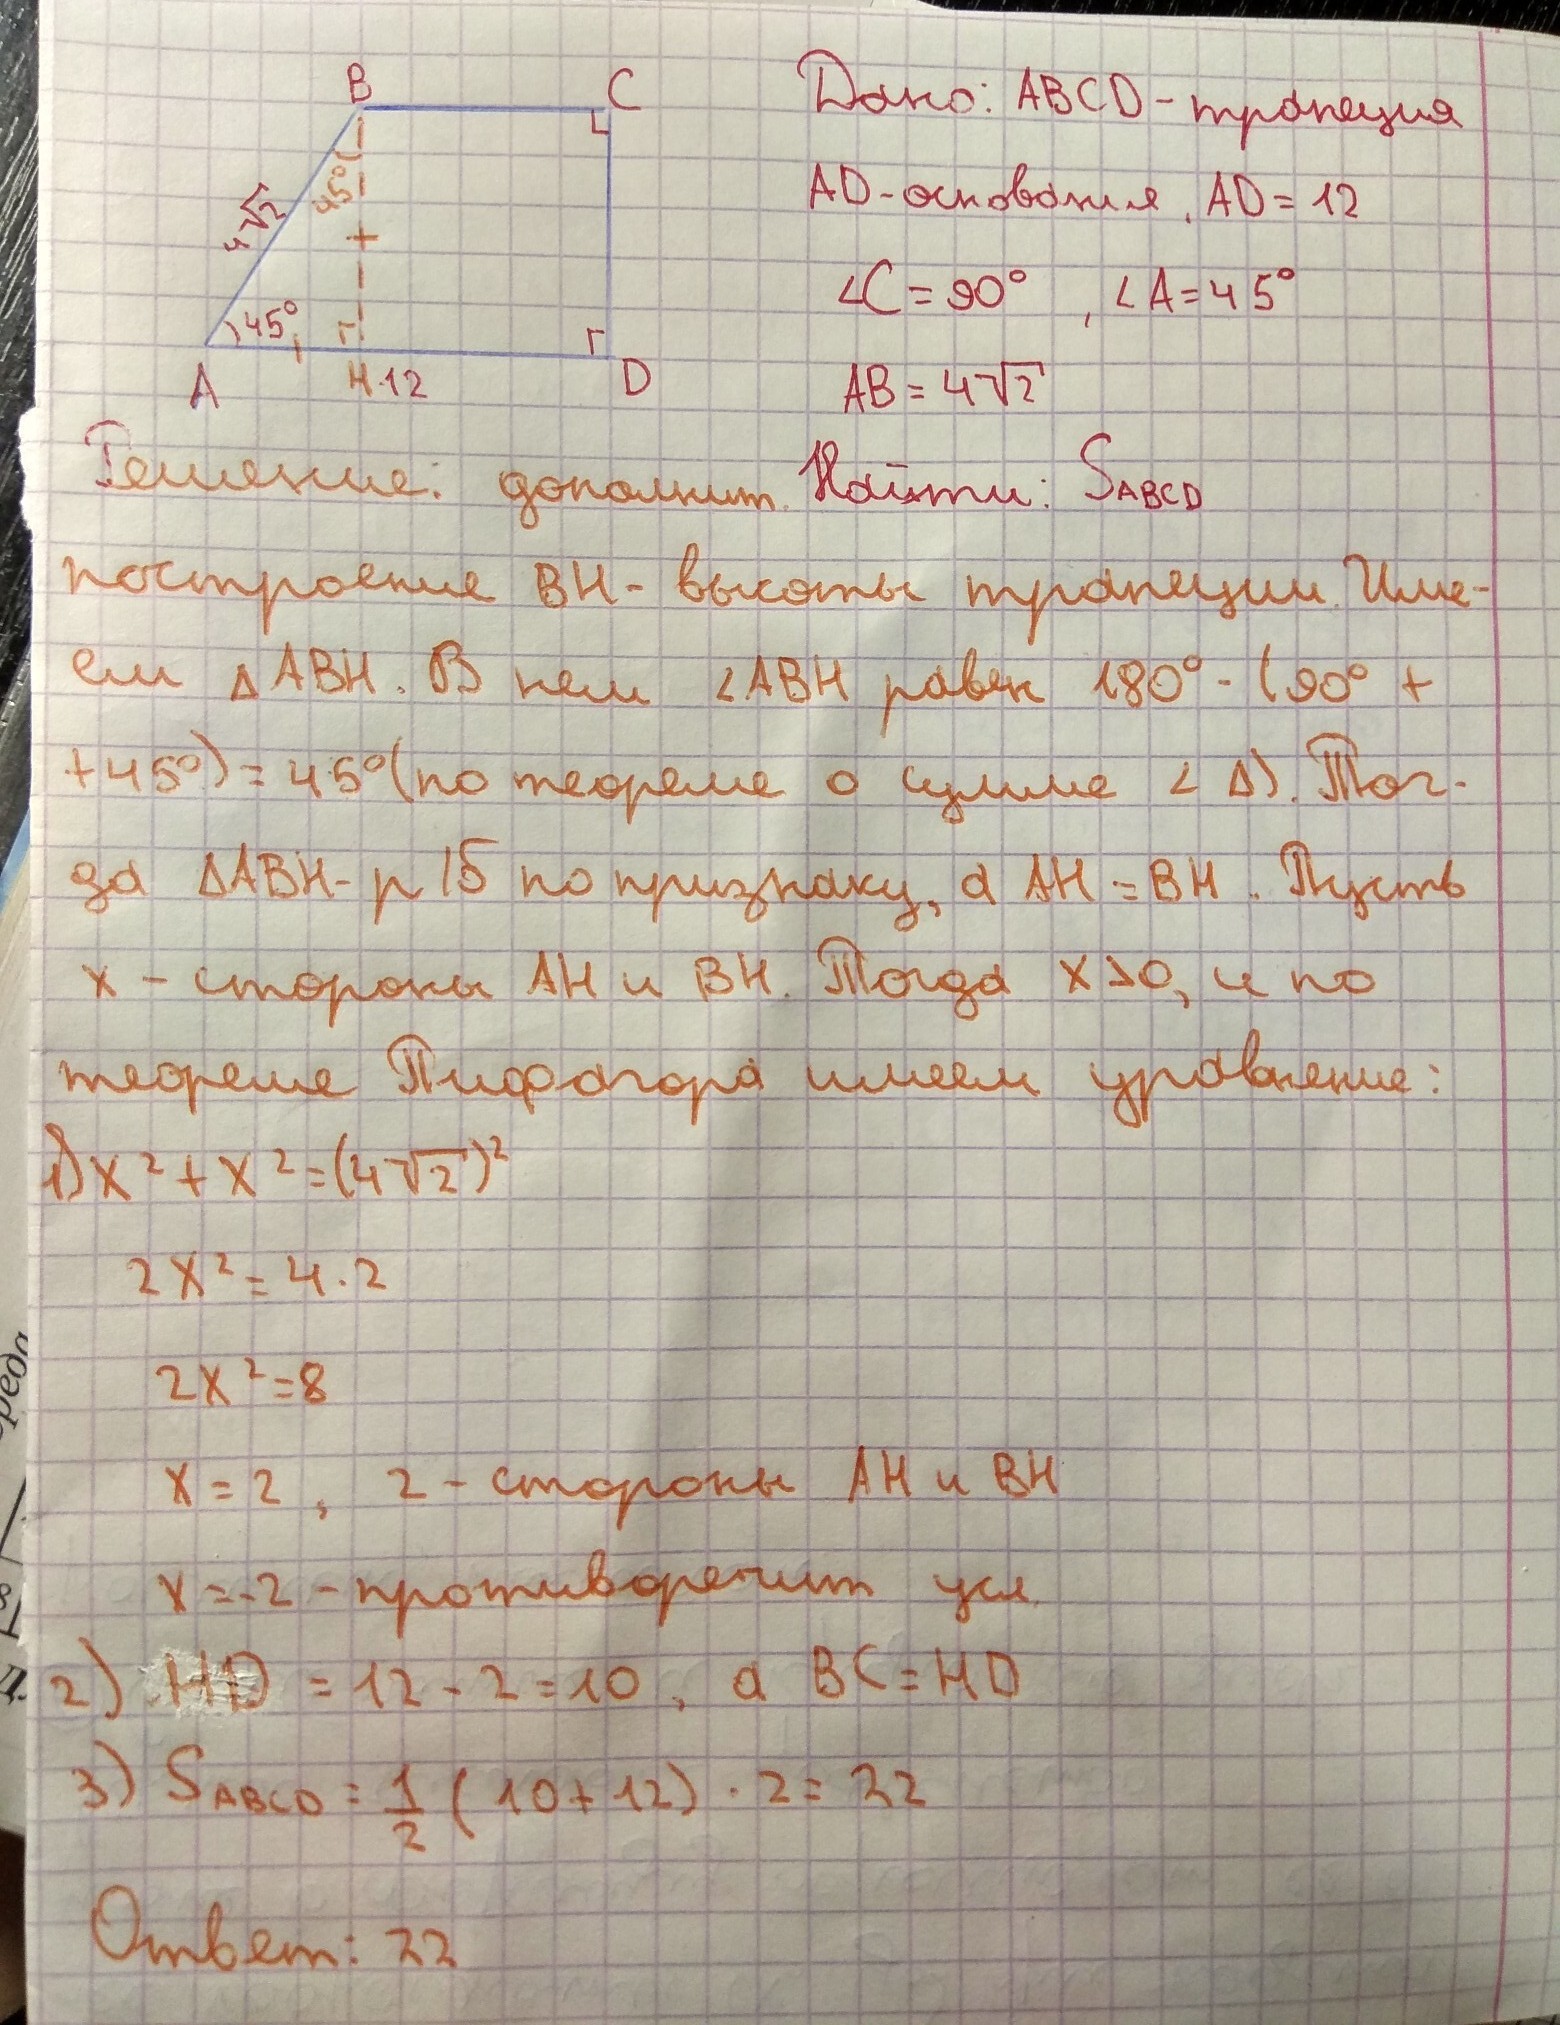 B C
Дано: ABCD - трапеция
4√2 45°
AD - основания, AD = 12
∠C = 90°, ∠A = 45°
45°
A H 12 D
AB = 4√2
Решение: дополнит. Найти: SABCD
построение BH - высоты трапеции. Име-
ем △ABH. В нем ∠ABH равен 180° - (90° +
+45°) = 45° (по теореме о сумме ∠ △). Тог-
да △ABH - р/б по признаку, а AH = BH. Пусть
x - стороны AH и BH. Тогда x > 0, и по
теореме Пифагора имеем уравнение:
1) x² + x² = (4√2)²
2x² = 4·2
2x² = 8
x = 2, 2 - стороны AH и BH
x = -2 - противоречит усл.
2) HD = 12 - 2 = 10, а BC = HD
3) SABCD = 1/2 (10 + 12) · 2 = 22
Ответ: 22